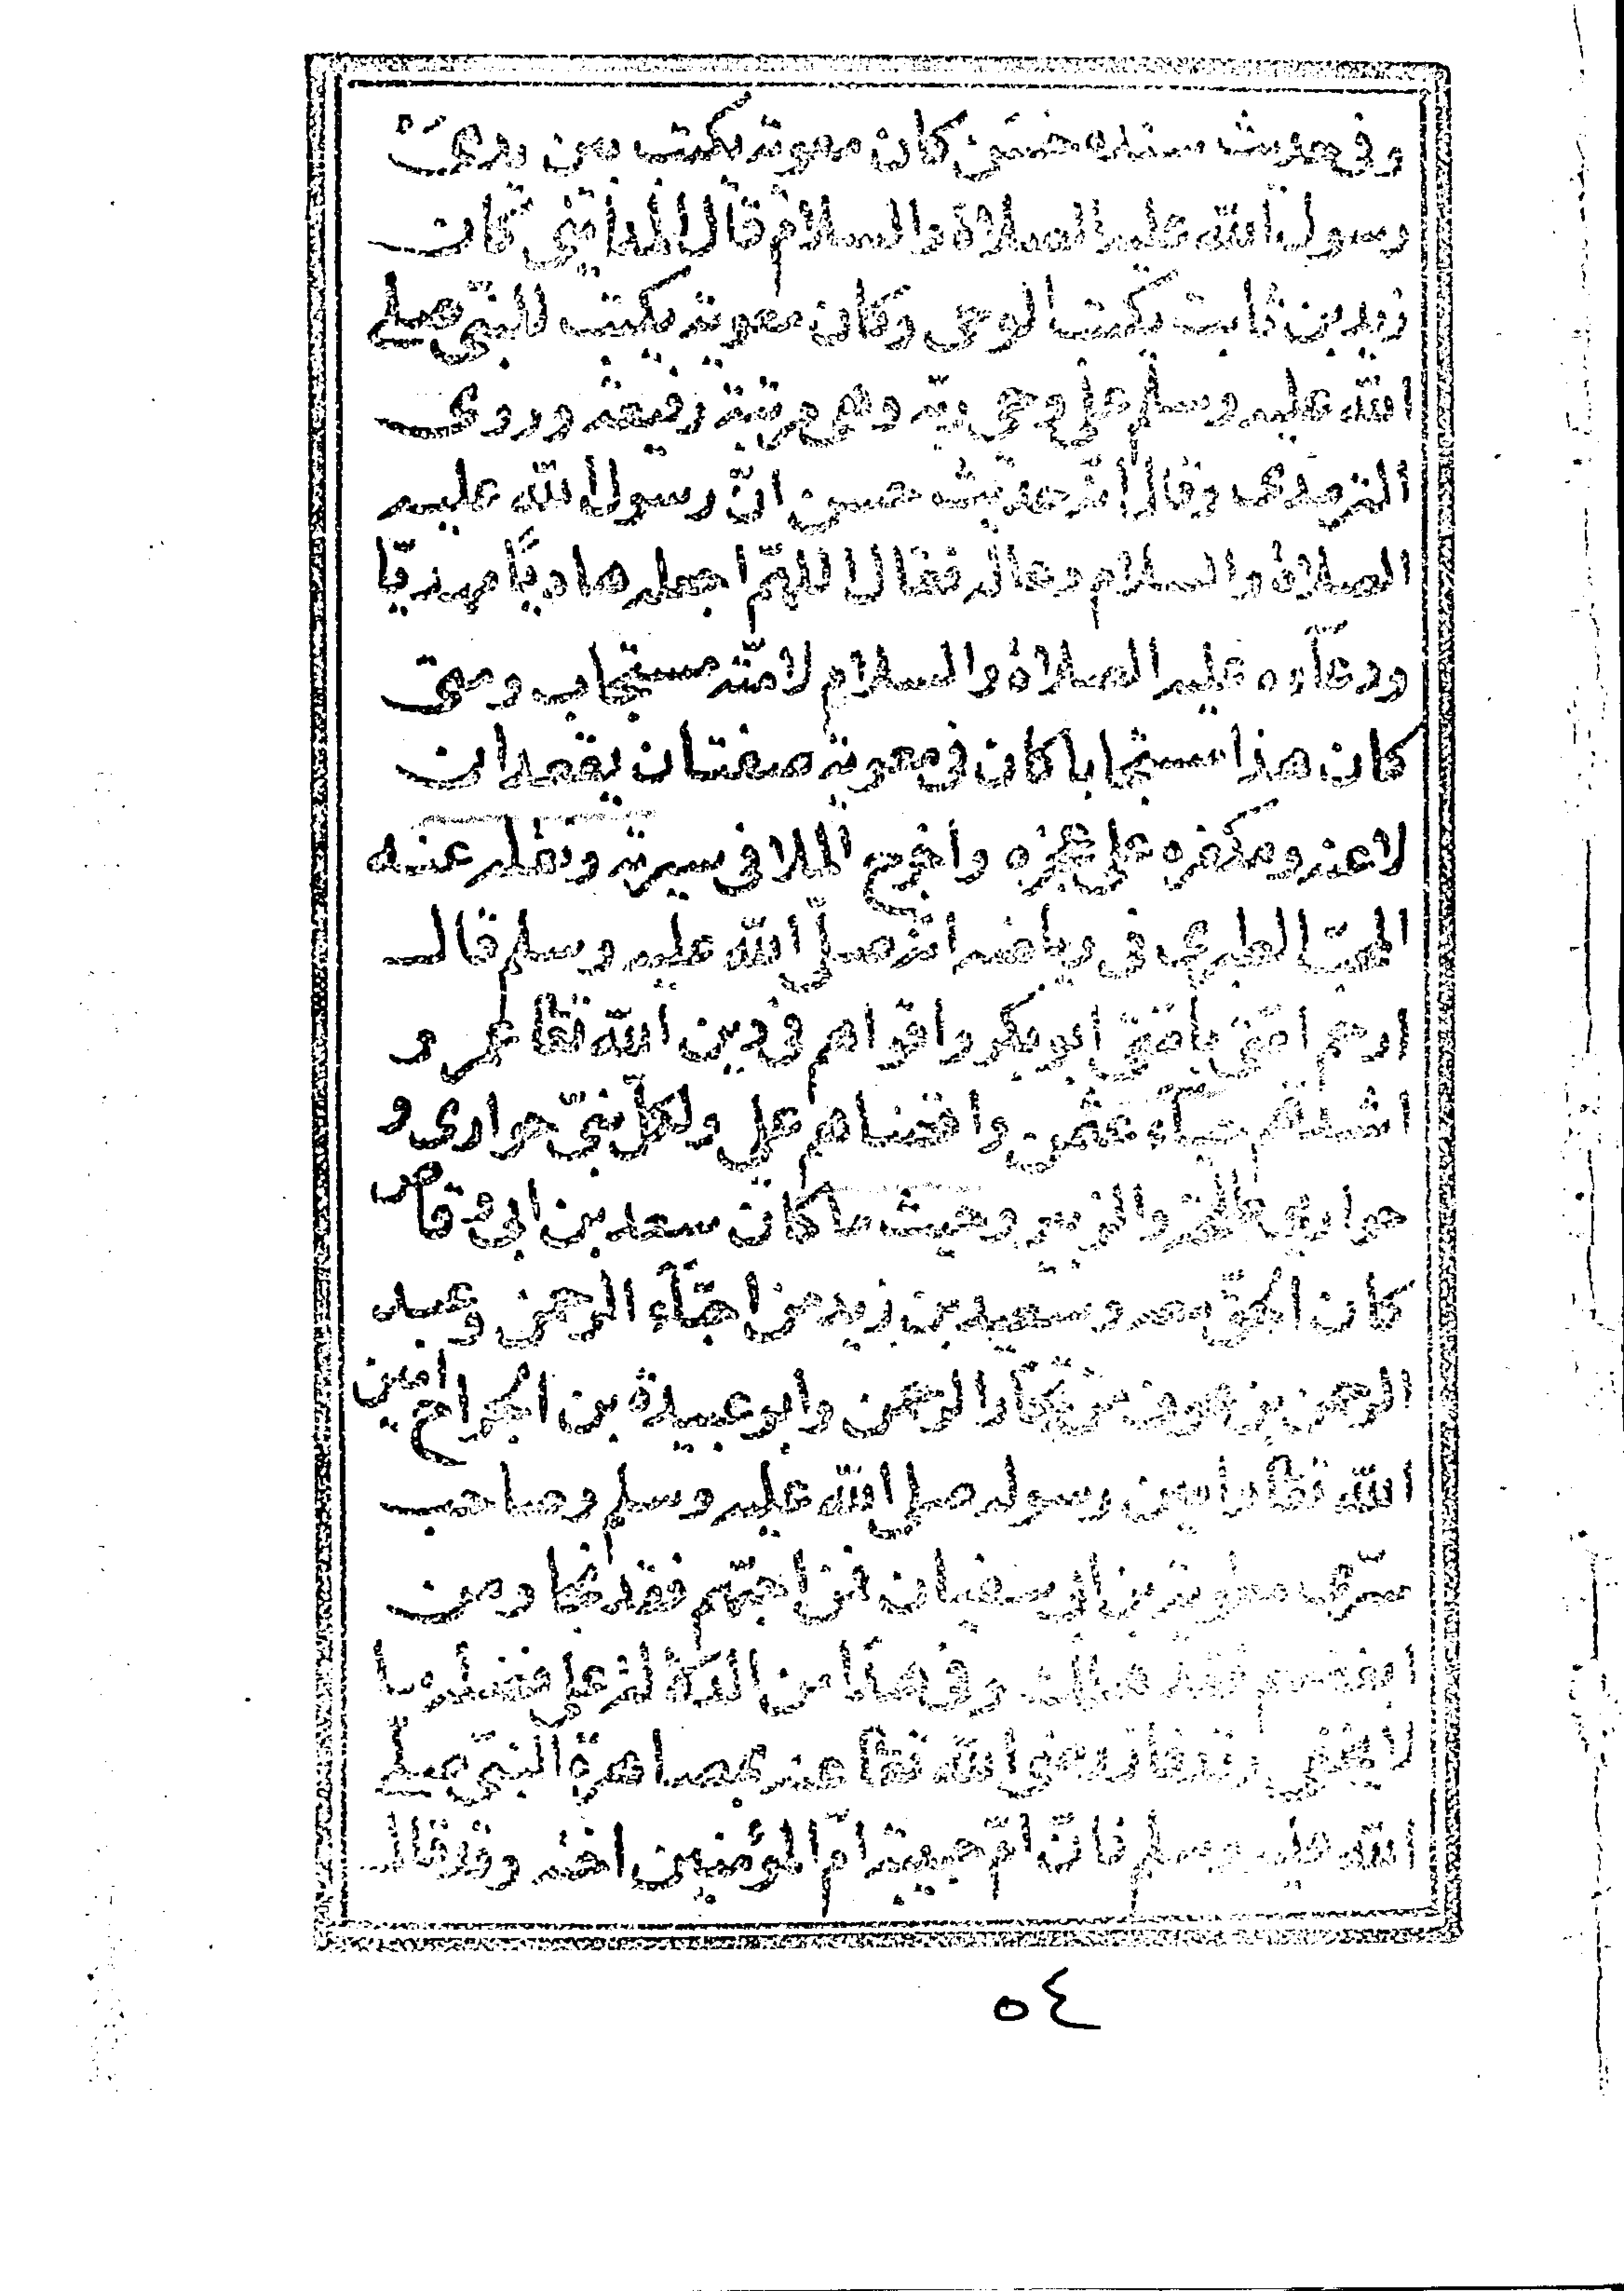 وفى حديث سنده حسن كان معوية يكتب بين يدى
رسول الله عليه الصلاة والسلام قال المدائنى كان
زيد بن ثابت يكتب الوحى وكان معوية يكتب للنبى صلى
الله عليه وسلم على وحى ربه وهى مرتبة رفيعة وروى
الترمذى وقال انه حديث حسن ان رسول الله عليه
الصلاة والسلام دعا له فقال اللهم اجعله هاديا مهديا
ودعآءه عليه الصلاة والسلام لامته مستجاب ومتى
كان هذا مستجابا كان فى معوية صفتان يقعدان
لاعنه ومكفره على عجزه واخرج الملا فى سيرته ونقله عنه
المحب الطبرى فى رياضه انه صلى الله عليه وسلم قال
ارحم امتى بامتى ابو بكر واقواهم فى دين الله تعالى عمر و
اشدهم حيآء عثمن واقضاهم على ولكل نبى حوارى و
حوارى طلحة والزبير وحيث ما كان سعد بن ابى وقاص
كان الحق معه وسعيد بن زيد من احبآء الرحمن وعبد
الرحمن بن عوف من تجار الرحمن وابو عبيدة بن الجراح امين
الله تعالى وامين رسوله صلى الله عليه وسلم وصاحب
سرى معاوية بن ابى سفيان فمن احبهم فقد نجا ومن
ابغضهم فقد هلك وفى هذا من الدلالة على فضله ما
لا يخفى رضى الله تعالى عنه بمصاهرة النبى صلى
الله عليه وسلم فان ام حبيبة ام المؤمنين اخته وقد قال
٥٤